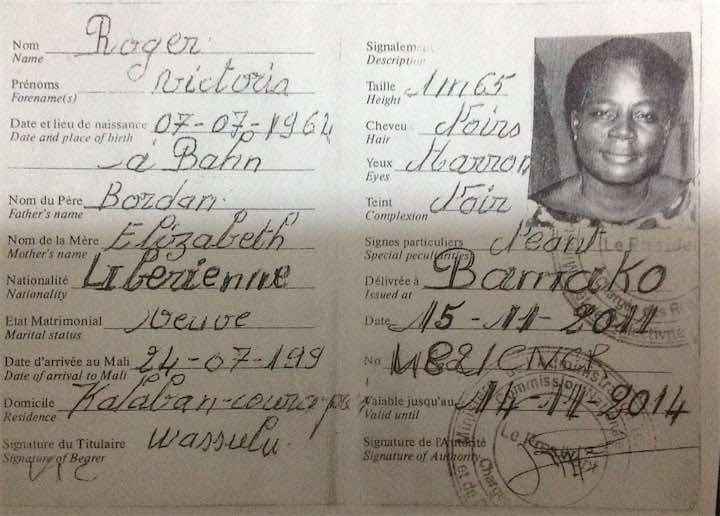 Nom Roger
Name
Prénoms Victoria
Forename(s)
Date et lieu de naissance 07-07-1962
Date and place of birth
à Bahn
Nom du Père Bordan
Father's name
Nom de la Mère Elizabeth
Mother's name
Nationalité Liberienne
Nationality
Etat Matrimonial Veuve
Marital status
Date d'arrivée au Mali 24-07-199
Date of arrival to Mali
Domicile Kalaban-coura
Residence
Wassulu
Signature du Titulaire
Signature of Bearer
Signalem
Description
Taille 1m65
Height
Cheveu Noirs
Hair
Yeux Marron
Eyes
Teint Noir
Complexion
Signes particuliers Néant
Special pecularities
Le Préside
Délivrée à Bamako
Issued at
Date 15-11-2011
No
Valable jusqu'au 14-11-2014
Valid until
Signature de l'Autorité
Signature of Authority